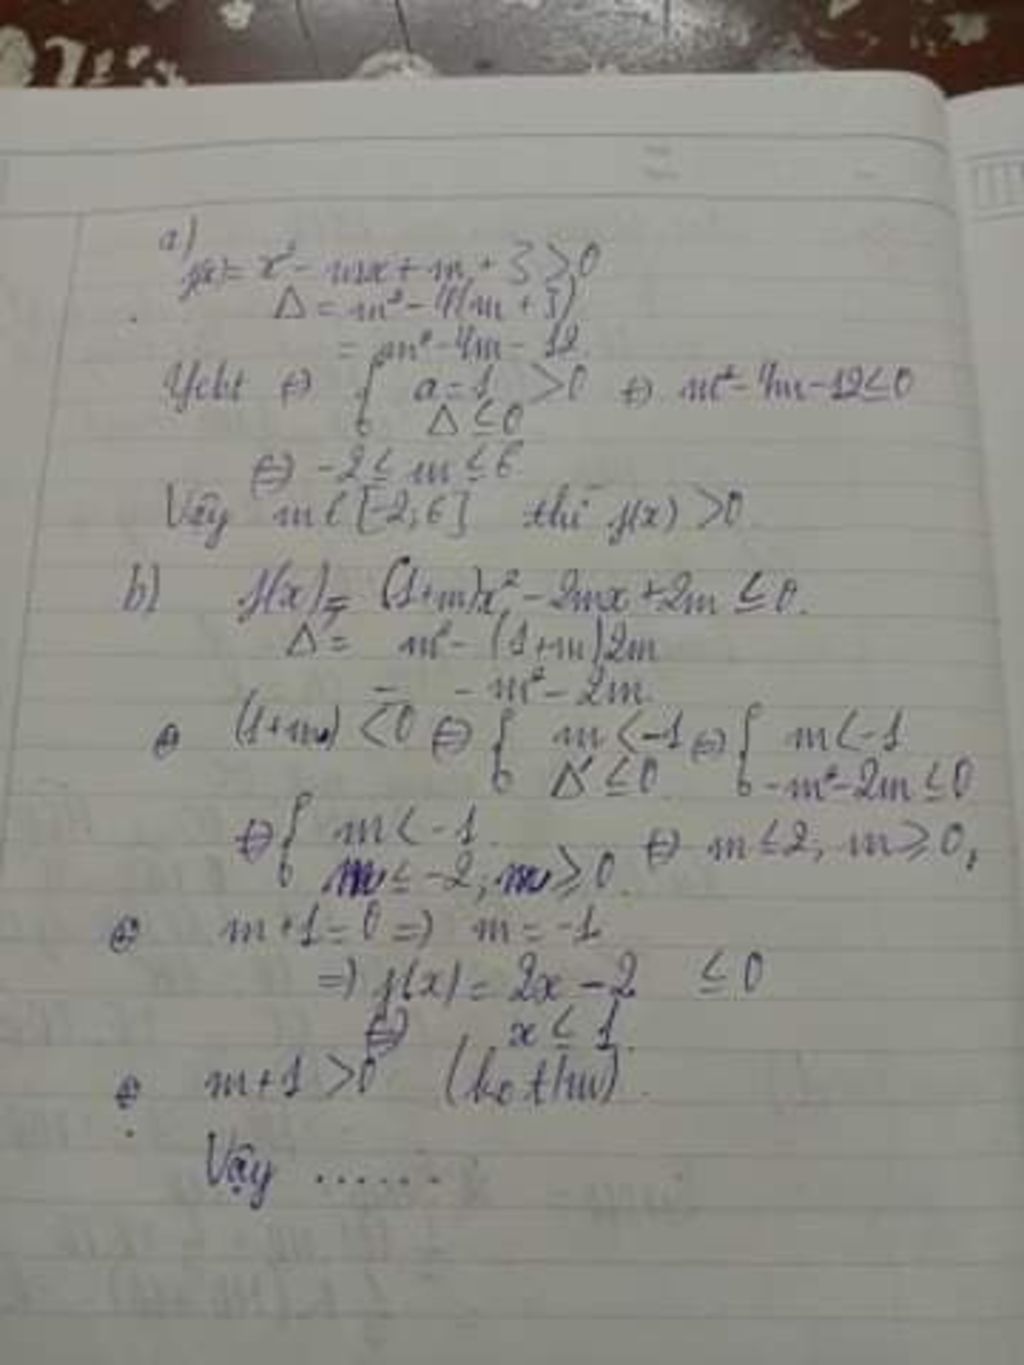 a)
f(x) = x² - mx + m + 3 > 0
Δ = m² - 4(m + 3)
= m² - 4m - 12
Ycbt ⇔ { a = 1 > 0 ⇔ m² - 4m - 12 ≤ 0
Δ ≤ 0
⇔ -2 ≤ m ≤ 6
Vậy m ∈ [-2; 6] thì f(x) > 0
b) f(x) = (1+m)x² - 2mx + 2m ≤ 0.
Δ = m² - (1+m)2m
= - m² - 2m.
(1+m) < 0 ⇔ { m < -1 ⇔ { m < -1
Δ' ≤ 0 -m² - 2m ≤ 0
⇔ { m < -1 ⇔ m ≤ 2, m ≥ 0,
m ≤ -2, m ≥ 0.
m + 1 = 0 => m = -1
=> f(x) = 2x - 2 ≤ 0
⇔ x ≤ 1.
m + 1 > 0 (ko t/m).
Vậy ......